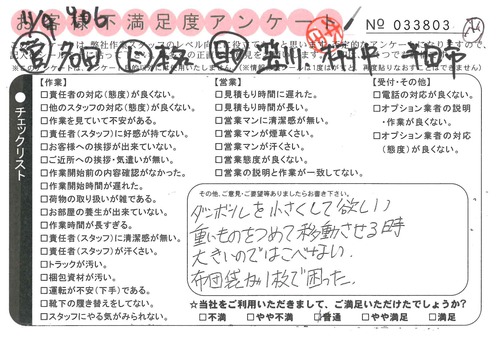 お客様不満足度アンケート
No 033803
チェックリスト
【作業】
□責任者の対応(態度)が良くない。
□他のスタッフの対応(態度)が良くない。
□作業を見ていて不安がある。
□責任者(スタッフ)に好感が持てない。
□お客様への挨拶が出来ていない。
□ご近所への挨拶・気遣いが無い。
□作業開始前の内容確認がなかった。
□作業開始時間が遅れた。
□荷物の取り扱いが雑である。
□お部屋の養生が出来ていない。
□作業時間が長すぎる。
□責任者(スタッフ)に清潔感が無い。
□責任者(スタッフ)が汗くさい。
□トラックが汚い。
□梱包資材が汚い。
□運転が不安(下手)である。
□靴下の履き替えをしてない。
□スタッフにやる気がみられない。
【営業】
□見積もり時間に遅れた。
□見積もり時間が長い。
□営業マンに清潔感が無い。
□営業マンが煙草くさい。
□営業マンが汗くさい。
□営業態度が良くない。
□営業の説明と作業が一致してない。
【受付・その他】
□電話の対応が良くない。
□オプション業者の説明
・作業が良くない。
□オプション業者の対応
(態度)が良くない。
その他、ご意見・ご要望等ありましたらお書き下さい。
ダンボールを小さくして欲しい
重いものをつめて移動させる時
大きいのではこべない
布団袋が1枚で困った。
☆当社をご利用いただきまして、ご満足いただけたでしょうか?
□不満 □やや不満 □普通 □やや満足 □満足